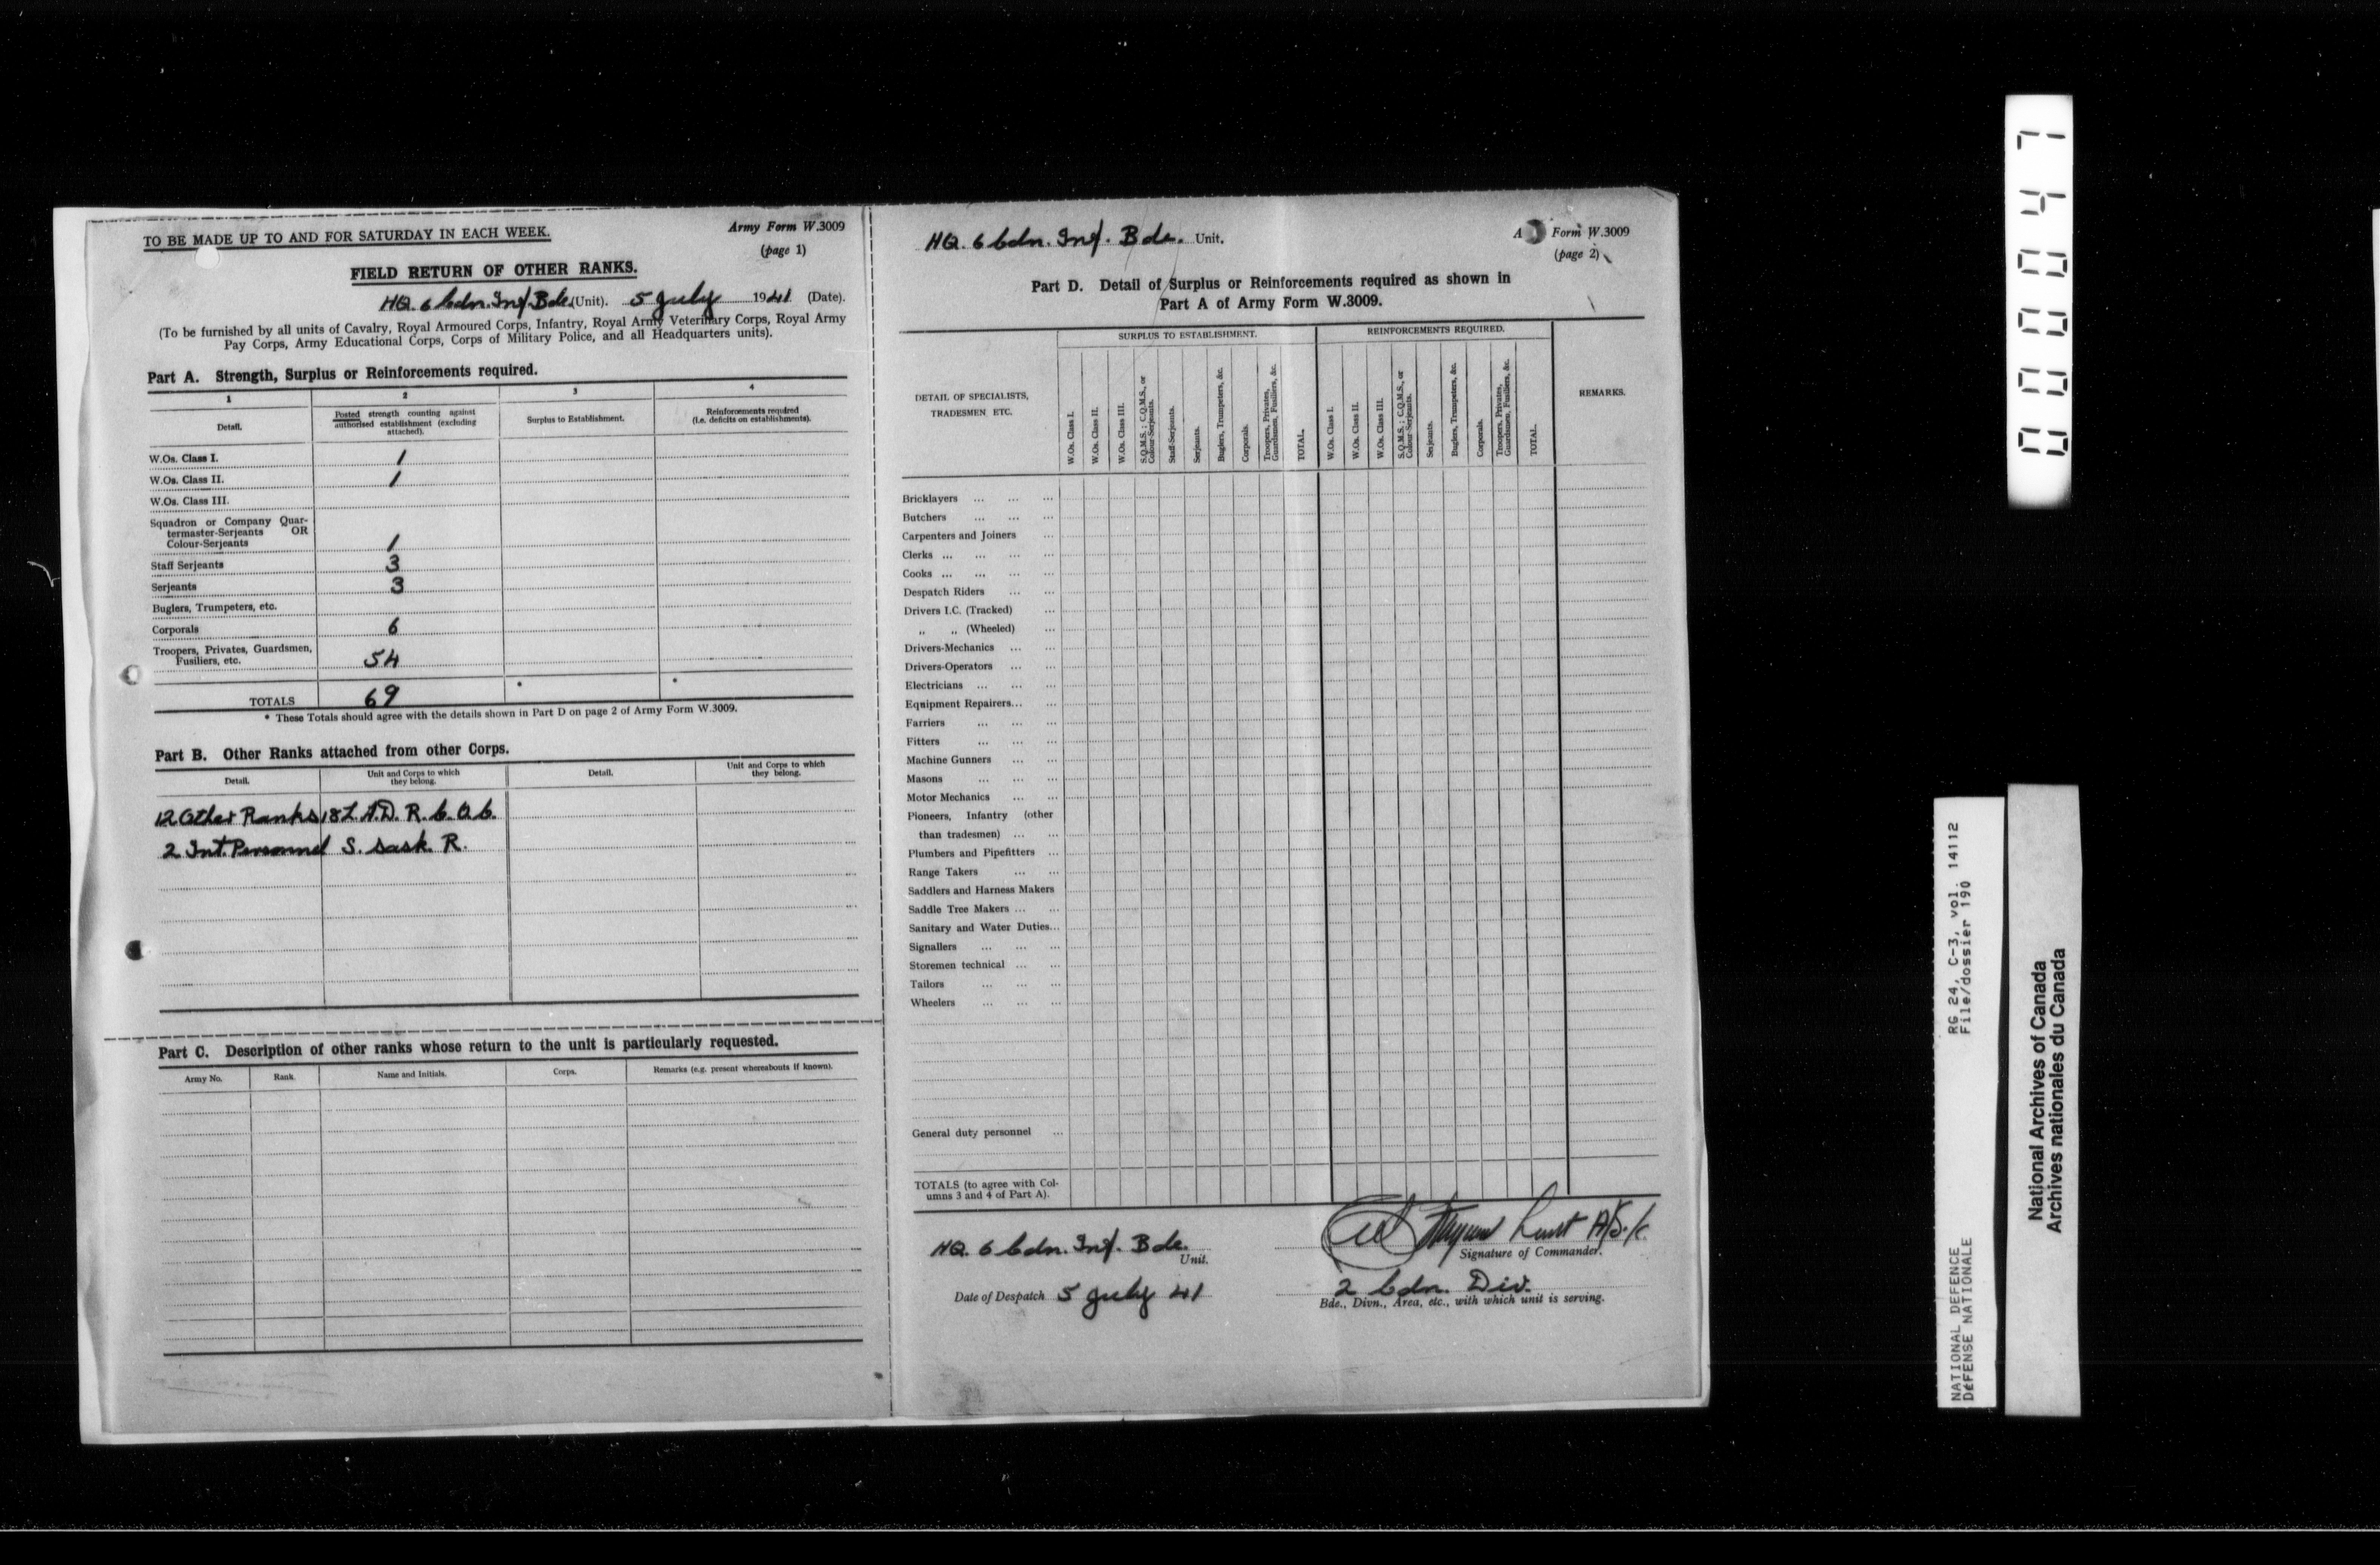 TO BE MADE UP TO AND FOR SATURDAY IN EACH WEEK.
Army Form W.3009
(page 1)
FIELD RETURN OF OTHER RANKS.
HQ. 6 Cdn. Inf. Bde. (Unit). 5 July 1941 (Date).
(To be furnished by all units of Cavalry, Royal Armoured Corps, Infantry, Royal Army Veterinary Corps, Royal Army
Pay Corps, Army Educational Corps, Corps of Military Police, and all Headquarters units).
Part A. Strength, Surplus or Reinforcements required.
1 2 3 4
Detail.
Posted strength counting against
authorised establishment (excluding
attached).
Surplus to Establishment.
Reinforcements required
(i.e. deficits on establishments).
W.Os. Class I. 1
W.Os. Class II. 1
W.Os. Class III.
Squadron or Company Quar-
termaster-Serjeants OR
Colour-Serjeants 1
Staff Serjeants 3
Serjeants 3
Buglers, Trumpeters, etc.
Corporals 6
Troopers, Privates, Guardsmen,
Fusiliers, etc. 54
TOTALS 69 * *
* These Totals should agree with the details shown in Part D on page 2 of Army Form W.3009.
Part B. Other Ranks attached from other Corps.
Detail.
Unit and Corps to which
they belong.
Detail.
Unit and Corps to which
they belong.
12 Other Ranks 18 L.A.D. R.C.O.C.
2 Int. Personnel S. Sask. R.
Part C. Description of other ranks whose return to the unit is particularly requested.
Army No. Rank. Name and Initials. Corps. Remarks (e.g. present whereabouts if known).
HQ. 6 Cdn. Inf. Bde. Unit.
A Form W.3009
(page 2)
Part D. Detail of Surplus or Reinforcements required as shown in
Part A of Army Form W.3009.
DETAIL OF SPECIALISTS,
TRADESMEN, ETC.
SURPLUS TO ESTABLISHMENT.
W.Os. Class I.
W.Os. Class II.
W.Os. Class III.
S.Q.M.S.; C.Q.M.S., or
Colour-Serjeants.
Staff-Serjeants.
Serjeants.
Buglers, Trumpeters, &c.
Corporals.
Troopers, Privates,
Guardsmen, Fusiliers, &c.
TOTAL.
REINFORCEMENTS REQUIRED.
W.Os. Class I.
W.Os. Class II.
W.Os. Class III.
S.Q.M.S.; C.Q.M.S., or
Colour-Serjeants.
Serjeants.
Buglers, Trumpeters, &c.
Corporals.
Troopers, Privates,
Guardsmen, Fusiliers, &c.
TOTAL.
REMARKS.
Bricklayers ... ... ...
Butchers ... ... ...
Carpenters and Joiners ...
Clerks ... ... ... ...
Cooks ... ... ... ...
Despatch Riders ... ...
Drivers I.C. (Tracked) ...
„ „ (Wheeled) ...
Drivers-Mechanics ... ...
Drivers-Operators ... ...
Electricians ... ... ...
Equipment Repairers... ...
Farriers ... ... ...
Fitters ... ... ...
Machine Gunners ... ...
Masons ... ... ...
Motor Mechanics ... ...
Pioneers, Infantry (other
than tradesmen) ... ...
Plumbers and Pipefitters ...
Range Takers ... ...
Saddlers and Harness Makers
Saddle Tree Makers ... ...
Sanitary and Water Duties...
Signallers ... ... ...
Storemen technical ... ...
Tailors ... ... ...
Wheelers ... ... ...
General duty personnel ...
TOTALS (to agree with Col-
umns 3 and 4 of Part A).
HQ. 6 Cdn. Inf. Bde.
Unit.
Signature of Commander.
Date of Despatch 5 July 41
2 Cdn. Div.
Bde., Divn., Area, etc., with which unit is serving.
000047
NATIONAL DEFENCE RG 24, C-3, vol. 14112
DéFENSE NATIONALE File/dossier 190
National Archives of Canada
Archives nationales du Canada